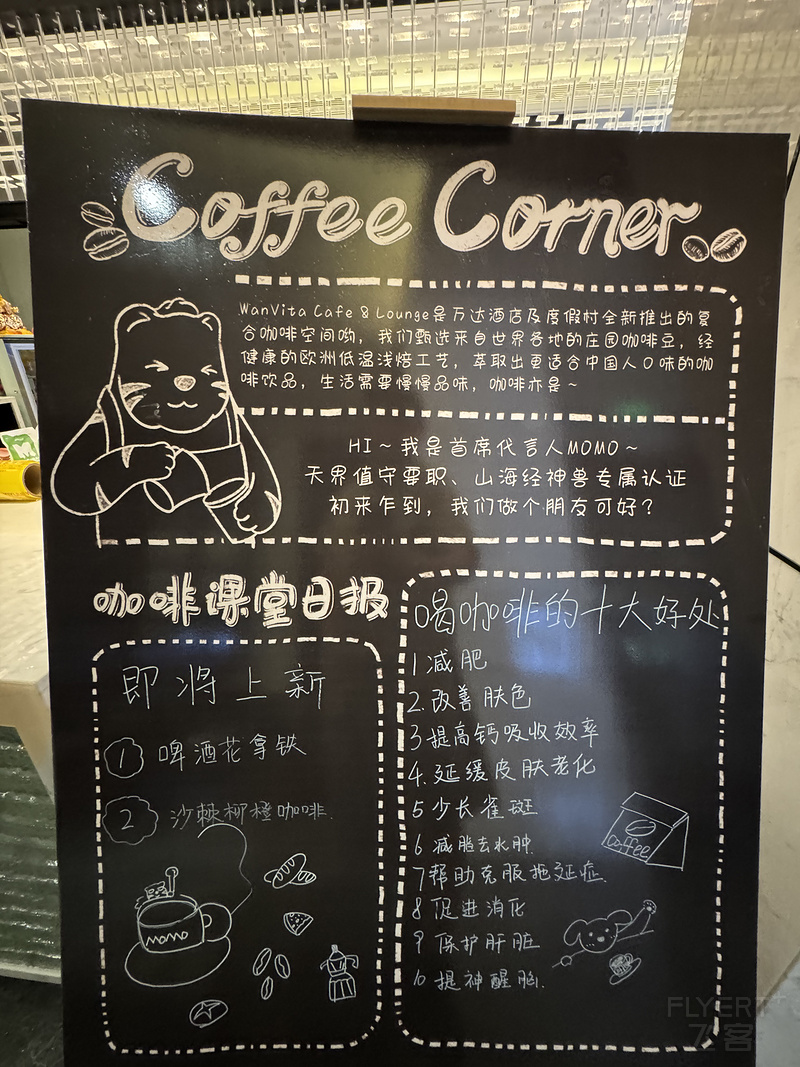 Coffee Corner
WanVita Cafe & Lounge是万达酒店及度假村全新推出的复
合咖啡空间呦，我们甄选来自世界各地的庄园咖啡豆，经
健康的欧洲低温浅焙工艺，萃取出更适合中国人口味的咖
啡饮品，生活需要慢慢品味，咖啡亦是~
HI~我是首席代言人MOMO~
天界值守要职、山海经神兽专属认证
初来乍到，我们做个朋友可好？
咖啡课堂日报
即将上新
1 啤酒花拿铁
2 沙棘椰橙咖啡.
MOMO
喝咖啡的十大好处
1 减肥
2.改善肤色
3 提高钙吸收效率
4.延缓皮肤老化
5 少长雀斑
6 减脂去水肿.
7 帮助克服拖延症.
8 促进消化
9 保护肝脏
10 提神醒脑.
Coffee
FLYERT
飞客